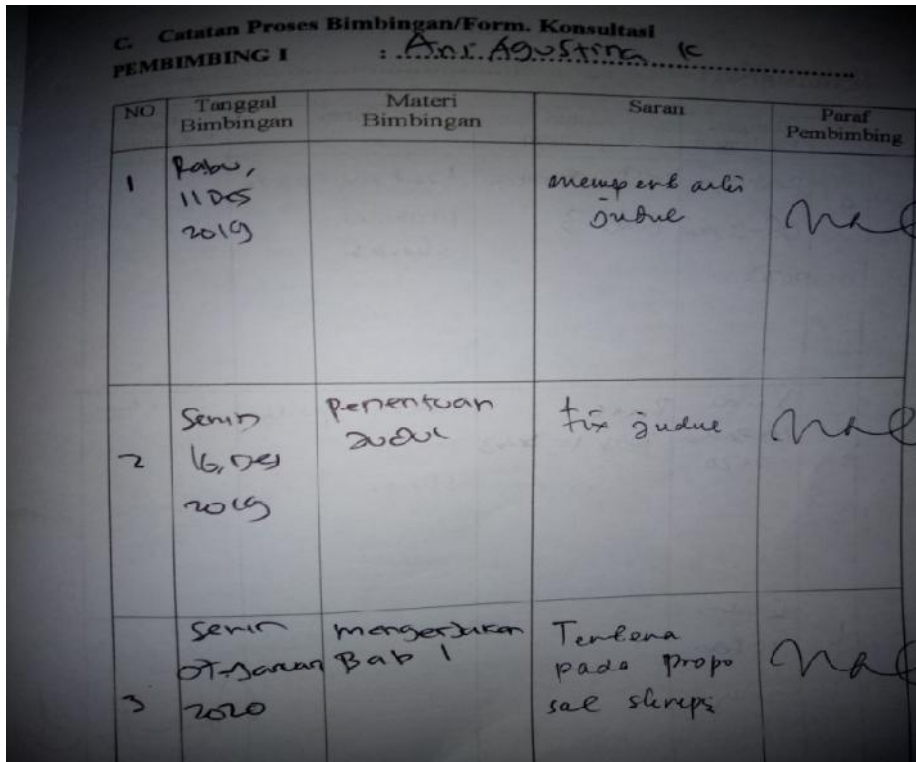 C. Catatan Proses Bimbingan/Form. Konsultasi
PEMBIMBING I : Ani Agustina K
NO Tanggal Bimbingan Materi Bimbingan Saran Paraf Pembimbing
1 Rabu,
11 Des
2019
judul
2 Senin
16, Des
2019
Penentuan
Judul
fix judul
3 Senin
2020
mengerjakan
Bab 1
pada propo
sal skripsi